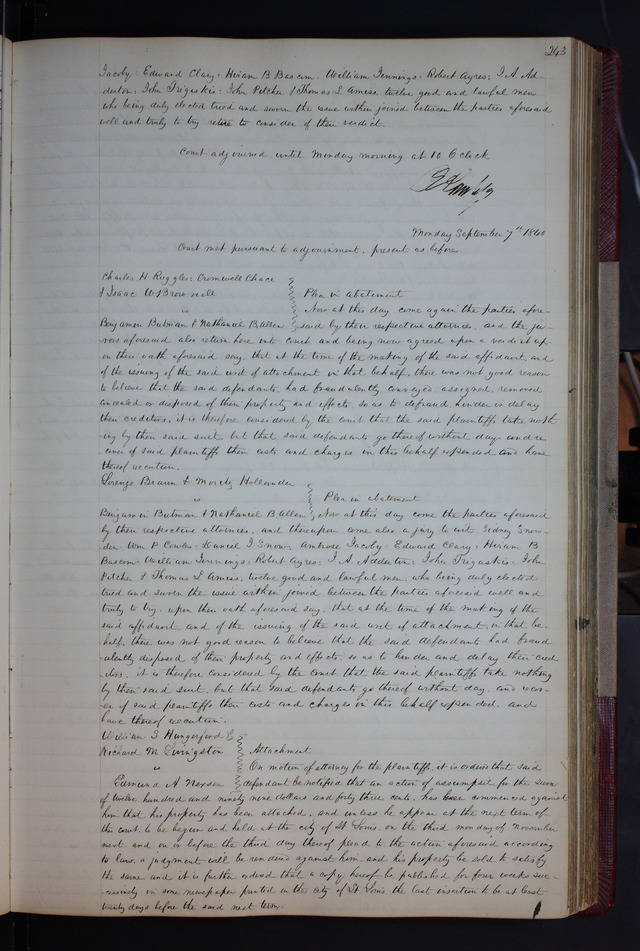 243
Jacoby: Edward Clary: Hiram B Bascom. William Jennings: Robert Ayres: I. A. Ad-
derton: John Trigaskis: John Pilcher & Thomas L Amiss. twelve good and lawful men
who being duly elected tried and sworn the issue within joined between the parties aforesaid
well and truly to try retire to consider of their verdict.
Court adjourned until Monday morning at 10 O'Clock
Monday September 7th 1840
Court met pursuant to adjournment. present as before
Charles H Ruggles: Cromwell Chace
& Isaac W Brownell
Plea in abatement
vs
Now at this day come again the parties afore-
Benjamin Butman & Nathaniel B. Allen
said by their respective attornies, and the ju-
rors aforesaid also return here into court and being now agreed upon a verdict up
on their oath aforesaid say, that at the time of the making of the said affidavit and
of the issuing of the said writ of attachment in that behalf, there was not good reason
to believe that the said defendants had fraudulently conveyed assigned, removed
concealed or disposed of their property and effects, so as to defraud, hinder or delay
their creditors, it is therefore considered by the court that the said plaintiffs take noth
ing by their said suit. but that said defendants go thereof without day and re
cover of said plaintiffs their costs and charges in this behalf expended and have
thereof execution.
Lorenzo Braun & Moritz Hollander
vs
Plea in abatement
Benjamin Butman & Nathaniel B. Allen
Now at this day come the parties aforesaid
by their respective attornies, and thereupon come also a jury to wit, Sidney Snow-
den Wm P. Cowles: Daniel I Snow: Ambrose Jacoby: Edward Clary: Hiram B
Bascom: William Jennings: Robert Ayres: I. A. Adderton: John Trigaskis: John
Pilcher & Thomas L Amiss: twelve good and lawful men, who being duly elected
tried and sworn the issue within joined between the parties aforesaid well and
truly to try. upon their oath aforesaid say, that at the time of the making of the
said affidavit and of the issuing of the said writ of attachment in that be-
half, there was not good reason to believe that the said defendant had fraud
ulently disposed of their property and effects, so as to hinder and delay their cred
itors. it is therefore considered by the court that the said plaintiffs take nothing
by their said suit, but that said defendants go thereof without day, and recov-
er of said plaintiffs their costs and charges in this behalf expended, and
have thereof execution.
William S Hungerford &
Richard M Livingston
Attachment
vs
On motion of attorney for the plaintiffs, it is orders that said
Edmund A Nexsen
defendant be notified that an action of assumpsit for the sum
of twelve hundred and ninety nine dollars and forty three cents. has been commenced against
him that his property has been attached, and unless he appear at the next term of
this court, to be begun and held at the city of St Louis, on the third monday of November
next and on or before the third day thereof plead to the action aforesaid according
to law, a judgment will be rendered against him, and his property be sold to satisfy
the same and it is further ordered that a copy hereof be published for four weeks suc-
cessively in some newspaper printed in the city of St Louis, the last insertion to be at least
twenty days before the said next term.